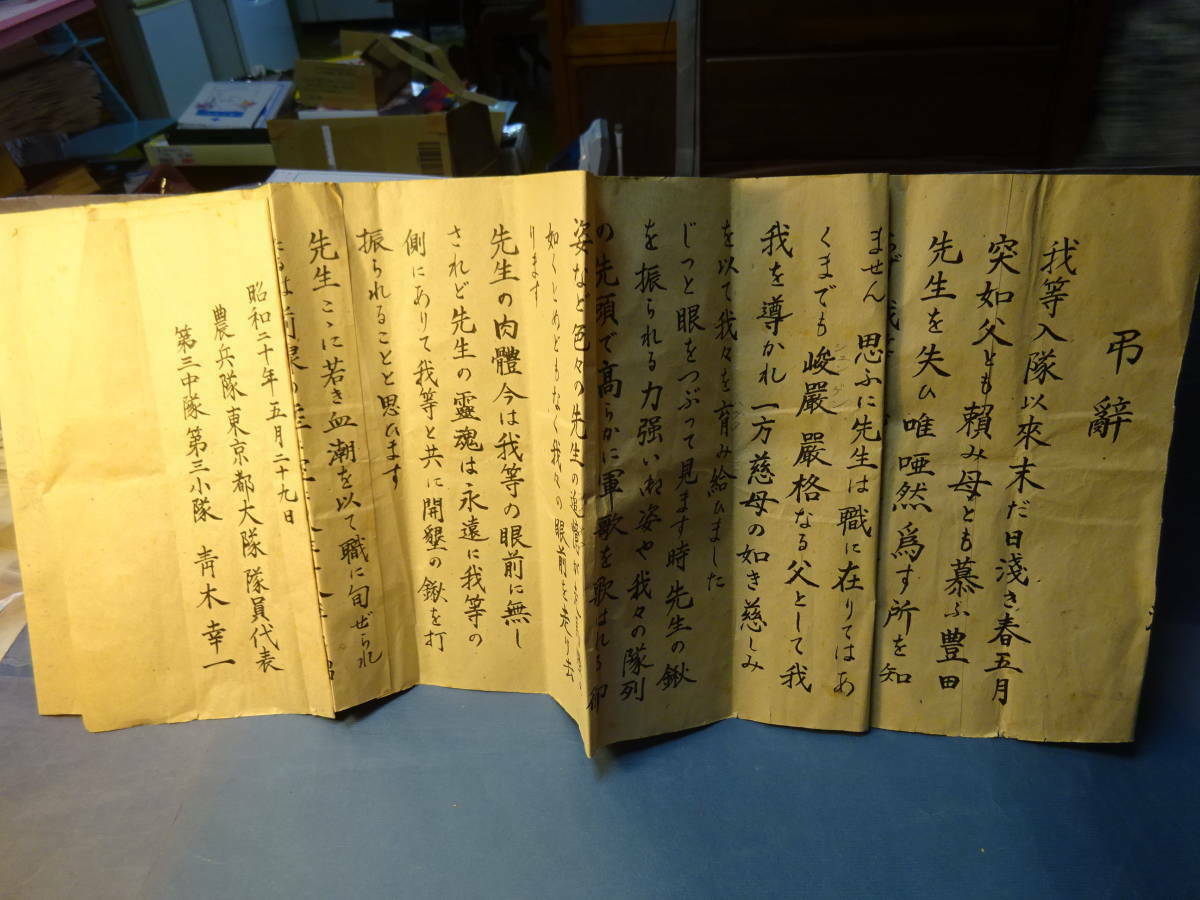 弔辭
我等入隊以來末だ日淺き春五月
突如父とも賴み母とも慕ふ豊田
先生を失ひ唯唖然爲す所を知
ません 思ふに先生は職に在りてはあ
くまでも峻嚴嚴格なる父として我
シュンゲン
我を導かれ一方慈母の如き慈しみ
を以て我々を育み給ひました
じつと眼をつぶって見ます時先生の鍬
を振られる力强い御姿や我々の隊列
の先頭で高らかに軍歌を歌はれる御
姿など色々の先生の追憶が
如くとめどもなく我々の眼前を走り去
ります
先生の肉體今は我等の眼前に無し
されど先生の靈魂は永遠に我等の
側にありて我等と共に開墾の鍬を打
振られることと思ひます
先生こゝに若き血潮を以て職に旬ぜられ
昭和二十年五月二十九日
農兵隊東京都大隊隊員代表
第三中隊第三小隊 靑木幸一